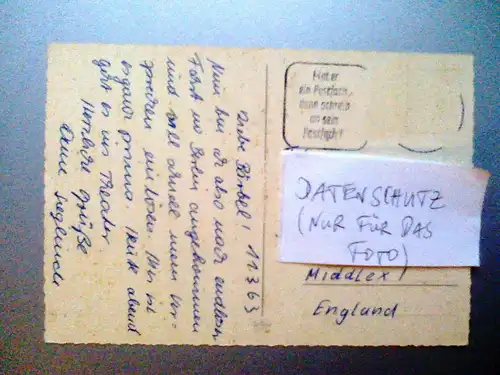 Liebe Bärbel! 11.3.63
Nun bin ich also nach endloser
Fahrt in Berlin angekommen
und will schnell mein Ver-
sprechen einlösen. Hier ist
es ganz prima. Heute abend
geht es ins Theater.
Herzliche Grüße
Deine Sieglinde
Hat er
ein Postfach,
dann schreib
an sein
Postfach!
DATENSCHUTZ
(NUR FÜR DAS
FOTO)
Middlex
England